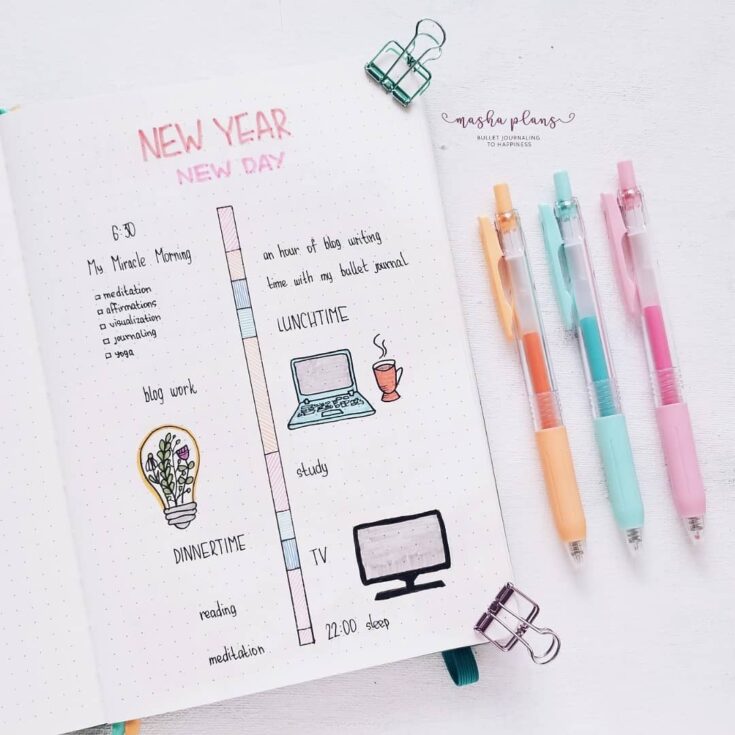 masha plans
BULLET JOURNALING
TO HAPPINESS
NEW YEAR
NEW DAY
6:30
My Miracle Morning
meditation
affirmations
visualization
journaling
yoga
an hour of blog writing
time with my bullet journal
LUNCHTIME
blog work
study
DINNERTIME
TV
reading
22:00 sleep
meditation